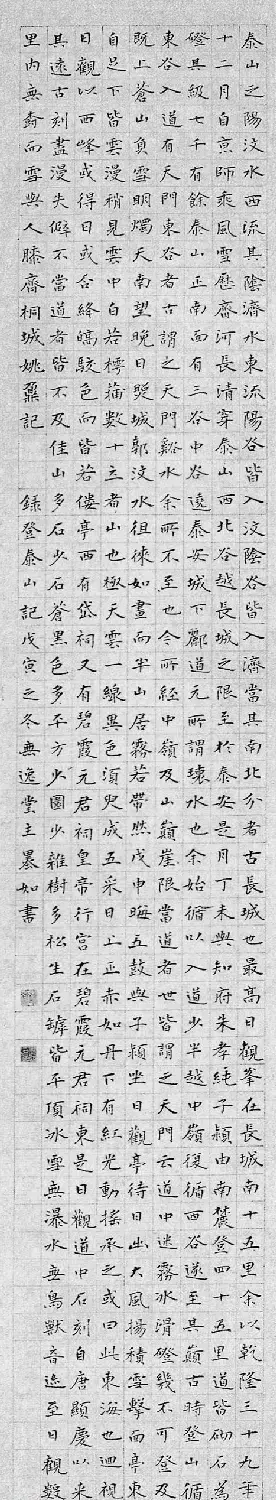 泰山之陽汶水西流其陰濟水東流陽谷皆入汶陰谷皆入濟當其南北分者古長城也最高日觀峯在長城南十五里余以乾隆三十九年
十二月自京師乘風雪歷齊河長清穿泰山西北谷越長城之限至於泰安是月丁未與知府朱孝純子潁由南麓登四十五里道皆砌石為
磴其級七千有餘泰山正南面有三谷中谷遶泰安城下酈道元所謂環水也余始循以入道少半越中嶺復循西谷遂至其巔古時登山循
東谷入道有天門東谷者古謂之天門谿水余所不至也今所經中嶺及山巔崖限當道者世皆謂之天門云道中迷霧冰滑磴幾不可登及
既上蒼山負雪明燭天南望晚日照城郭汶水徂徠如畫而半山居霧若帶然戊申晦五鼓與子潁坐日觀亭待日出大風揚積雪擊面亭東
自足下皆雲漫稍見雲中白若樗蒱數十立者山也極天雲一線異色須臾成五采日上正赤如丹下有紅光動搖承之或曰此東海也迴視
日觀以西峰或得日或否絳皜駁色而皆若僂亭西有岱祠又有碧霞元君祠皇帝行宮在碧霞元君祠東是日觀道中石刻自唐顯慶以來
其遠古刻盡漫失僻不當道者皆不及佳山多石少石蒼黑色多平方少圜少雜樹多松生石罅皆平頂冰雪無瀑水無鳥獸音迹至日觀數
里內無樹而雪與人膝齊桐城姚鼐記 錄登泰山記戊寅之冬無逸堂主如書